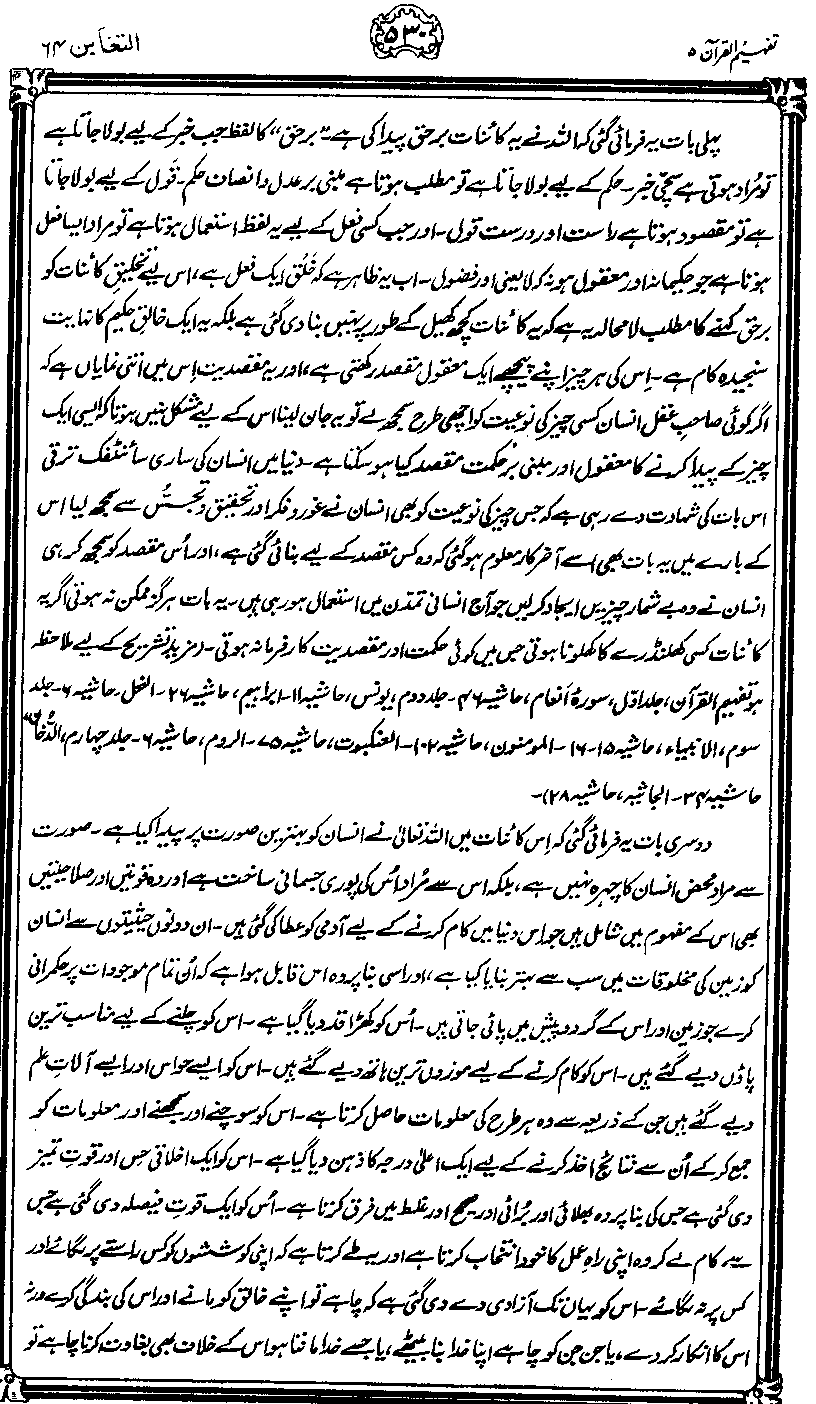 تفہیم القرآن ۵
۵۳۰
التغابن ۶۴
پہلی بات یہ فرمائی گئی کہ اللہ نے یہ کائنات برحق پیدا کی ہے۔ "برحق" کا لفظ جب خبر کے لیے بولا جاتا ہے
تو مُراد ہوتی ہے سچّی خبر۔ حکم کے لیے بولا جاتا ہے تو مطلب ہوتا ہے مبنی بر عدل و انصاف حکم۔ قَول کے لیے بولا جاتا
ہے تو مقصود ہوتا ہے راست اور درست قول۔ اور جب کسی فعل کے لیے یہ لفظ استعمال ہوتا ہے تو مراد ایسا فعل
ہوتا ہے جو حکیمانہ اور معقول ہو نہ کہ لایعنی اور فضول۔ اب یہ ظاہر ہے کہ خَلْق ایک فعل ہے، اس لیے تخلیقِ کائنات کو
برحق کہنے کا مطلب لامحالہ یہ ہے کہ یہ کائنات کچھ کھیل کے طور پر نہیں بنا دی گئی ہے بلکہ یہ ایک خالقِ حکیم کا نہایت
سنجیدہ کام ہے۔ اِس کی ہر چیز اپنے پیچھے ایک معقول مقصد رکھتی ہے، اور یہ مقصدیت اِس میں اتنی نمایاں ہے کہ
اگر کوئی صاحبِ عقل انسان کسی چیز کی نوعیت کو اچھی طرح سمجھ لے تو یہ جان لینا اس کے لیے مشکل نہیں ہوتا کہ ایسی ایک
چیز کے پیدا کرنے کا معقول اور مبنی برحکمت مقصد کیا ہو سکتا ہے۔ دنیا میں انسان کی ساری سائنٹفک ترقی
اس بات کی شہادت دے رہی ہے کہ جس چیز کی نوعیت کو بھی انسان نے غور و فکر اور تحقیق و تجسُّس سے سمجھ لیا اس
کے بارے میں یہ بات بھی اُسے آخر کار معلوم ہو گئی کہ وہ کس مقصد کے لیے بنائی گئی ہے، اور اُس مقصد کو سمجھ کر ہی
انسان نے وہ بے شمار چیزیں ایجاد کر لیں جو آج انسانی تمدّن میں استعمال ہو رہی ہیں۔ یہ بات ہرگز ممکن نہ ہوتی اگر یہ
کائنات کسی کھلنڈرے کا کھلونا ہوتی جس میں کوئی حکمت اور مقصدیت کارفرما نہ ہوتی۔ (مزید تشریح کے لیے ملاحظہ
ہو تفہیم القرآن، جلد اوّل، سورۂ اَنعام، حاشیہ ۴۶۔ جلد دوم، یونس، حاشیہ ۱۱۔ ابراہیم، حاشیہ ۲۶۔ النحل۔ حاشیہ ۶۔ جلد
سوم، الانبیاء، حاشیہ ۱۵-۱۶۔ المومنون، حاشیہ ۱۰۲۔ العنکبوت، حاشیہ ۷۵۔ الروم، حاشیہ ۶۔ جلد چہارم، الدُّخان
حاشیہ ۳۴۔ الجاثیہ، حاشیہ ۲۸)۔
دوسری بات یہ فرمائی گئی کہ اِس کائنات میں اللہ تعالیٰ نے انسان کو بہترین صورت پر پیدا کیا ہے۔ صورت
سے مراد محض انسان کا چہرہ نہیں ہے، بلکہ اس سے مُراد اُس کی پوری جسمانی ساخت ہے اور وہ قوتیں اور صلاحیتیں
بھی اس کے مفہوم میں شامل ہیں جو اِس دنیا میں کام کرنے کے لیے آدمی کو عطا کی گئی ہیں۔ ان دونوں حیثیتوں سے انسان
کو زمین کی مخلوقات میں سب سے بہتر بنایا گیا ہے، اور اسی بنا پر وہ اس قابل ہوا ہے کہ اُن تمام موجودات پر حکمرانی
کرے جو زمین اور اس کے گرد و پیش میں پائی جاتی ہیں۔ اُس کو کھڑا قد دیا گیا ہے۔ اس کو چلنے کے لیے مناسب ترین
پاؤں دیے گئے ہیں۔ اس کو کام کرنے کے لیے موزوں ترین ہاتھ دیے گئے ہیں۔ اس کو ایسے حواس اور ایسے آلاتِ علم
دیے گئے ہیں جن کے ذریعہ سے وہ ہر طرح کی معلومات حاصل کرتا ہے۔ اس کو سوچنے اور سمجھنے اور معلومات کو
جمع کر کے اُن سے نتائج اخذ کرنے کے لیے ایک اعلیٰ درجہ کا ذہن دیا گیا ہے۔ اس کو ایک اخلاقی حِس اور قوتِ تمیز
دی گئی ہے جس کی بنا پر وہ بھلائی اور بُرائی اور صحیح اور غلط میں فرق کرتا ہے۔ اُس کو ایک قوتِ فیصلہ دی گئی ہے جس
سے کام لے کر وہ اپنی راہِ عمل کا خود انتخاب کرتا ہے اور یہ طے کرتا ہے کہ اپنی کوششوں کو کس راستے پر لگائے اور
کس پر نہ لگائے۔ اس کو یہاں تک آزادی دے دی گئی ہے کہ چاہے تو اپنے خالق کو مانے اور اس کی بندگی کرے ورنہ
اس کا انکار کر دے، یا جن جن کو چاہے اپنا خدا بنا بیٹھے، یا جسے خدا مانتا ہو اس کے خلاف بھی بغاوت کرنا چاہے تو